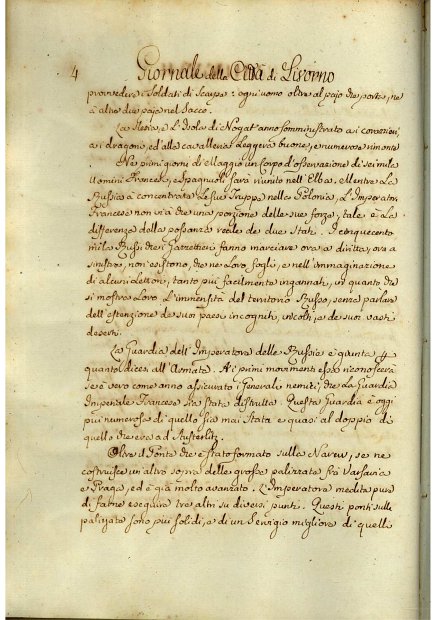 4 Giornale della Città di Livorno
provvedere i Soldati di Scarpe: ogni uomo oltre al pajo che porta, ne
à altre due paja nel Sacco.
La Slesia, e l'Isola di Nogat anno somministrato a i corazieri,
a i dragoni, ed alla cavalleria Leggera buone, e numerose rimonte
Ne primi giorni di Maggio un Corpo d'osservazione di sei mila
Uomini Francesi, e Spagnuoli sarà riunito nell'Elba. Mentre La
Russia à concentrate Le sue Truppe nella Polonia, L'Imperator
Francese non vi à che una porzione delle sue forze, tale è La
differenza della possanza reale de due Stati. I cinquecento
mila Russi che i Gazzettieri fanno marciare ora a diritta, ora a
sinistra, non esistono, che ne Loro fogli, e nell'immaginazione
di alcuni Lettori, tanto più facilmente ingannati, in quanto che
si mostra Loro L'immensità del territorio Russo, senza parlare
dell'estenzione de suoi paesi incogniti, incolti, e de suoi vasti
deserti.
La Guardia dell'Imperatore delle Russie è giunta
quanto dicesi all'Armata. A i primi movimenti essa riconoscerà
se è vero come anno assicurato i Generali nemici, che La Guardia
Imperiale Francese sia stata distrutta. Questa Guardia è oggi
più numerosa di quello sia mai Stata e quasi al doppio di
quello che era ad Austerlitz.
Oltre il Ponte che è stato formato sulla Narew, se ne
costruisce un'altro sopra delle grosse palizzate frà Varsavia
e Praga, ed è già molto avanzato. L'Imperatore medita pure
di farne eseguire tre altri su diversi punti. Questi ponti sulle
palizzate sono più solidi, e di un Servigio migliore di quelli